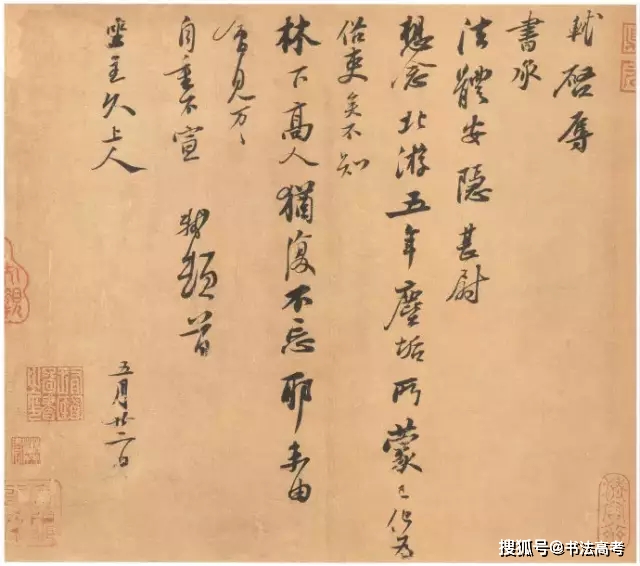 軾啓辱
書承
法體安隱甚尉
想念北游五年塵垢所蒙已化為
俗吏矣不知
林下高人猶復不忘耶未由
會見万〻
自重不宣 軾頓首
坐主久上人
五月廿二日
搜狐号@书法高考